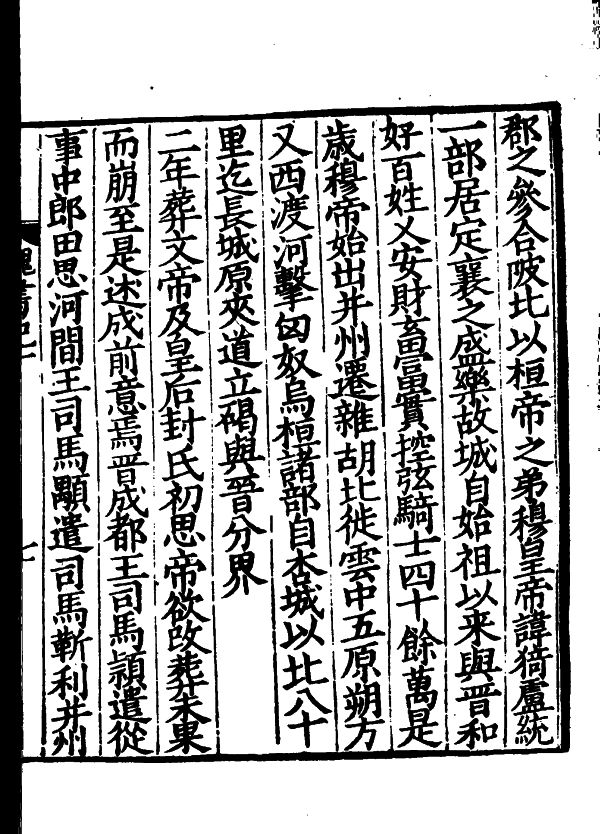 郡之參合陂北以桓帝之弟穆皇帝諱猗盧統
一部居定襄之盛樂故城自始祖以来與晉和
好百姓乂安財畜富實控弦騎士四十餘萬是
歳穆帝始出并州遷雜胡北徙雲中五原朔方
又西渡河擊匈奴烏桓諸部自杏城以北八十
里迄長城原夾道立碣與晉分界
二年葬文帝及皇后封氏初思帝欲改葬未果
而崩至是述成前意焉晉成都王司馬穎遣從
事中郎田思河間王司馬顒遣司馬靳利并州
魏書紀一
七